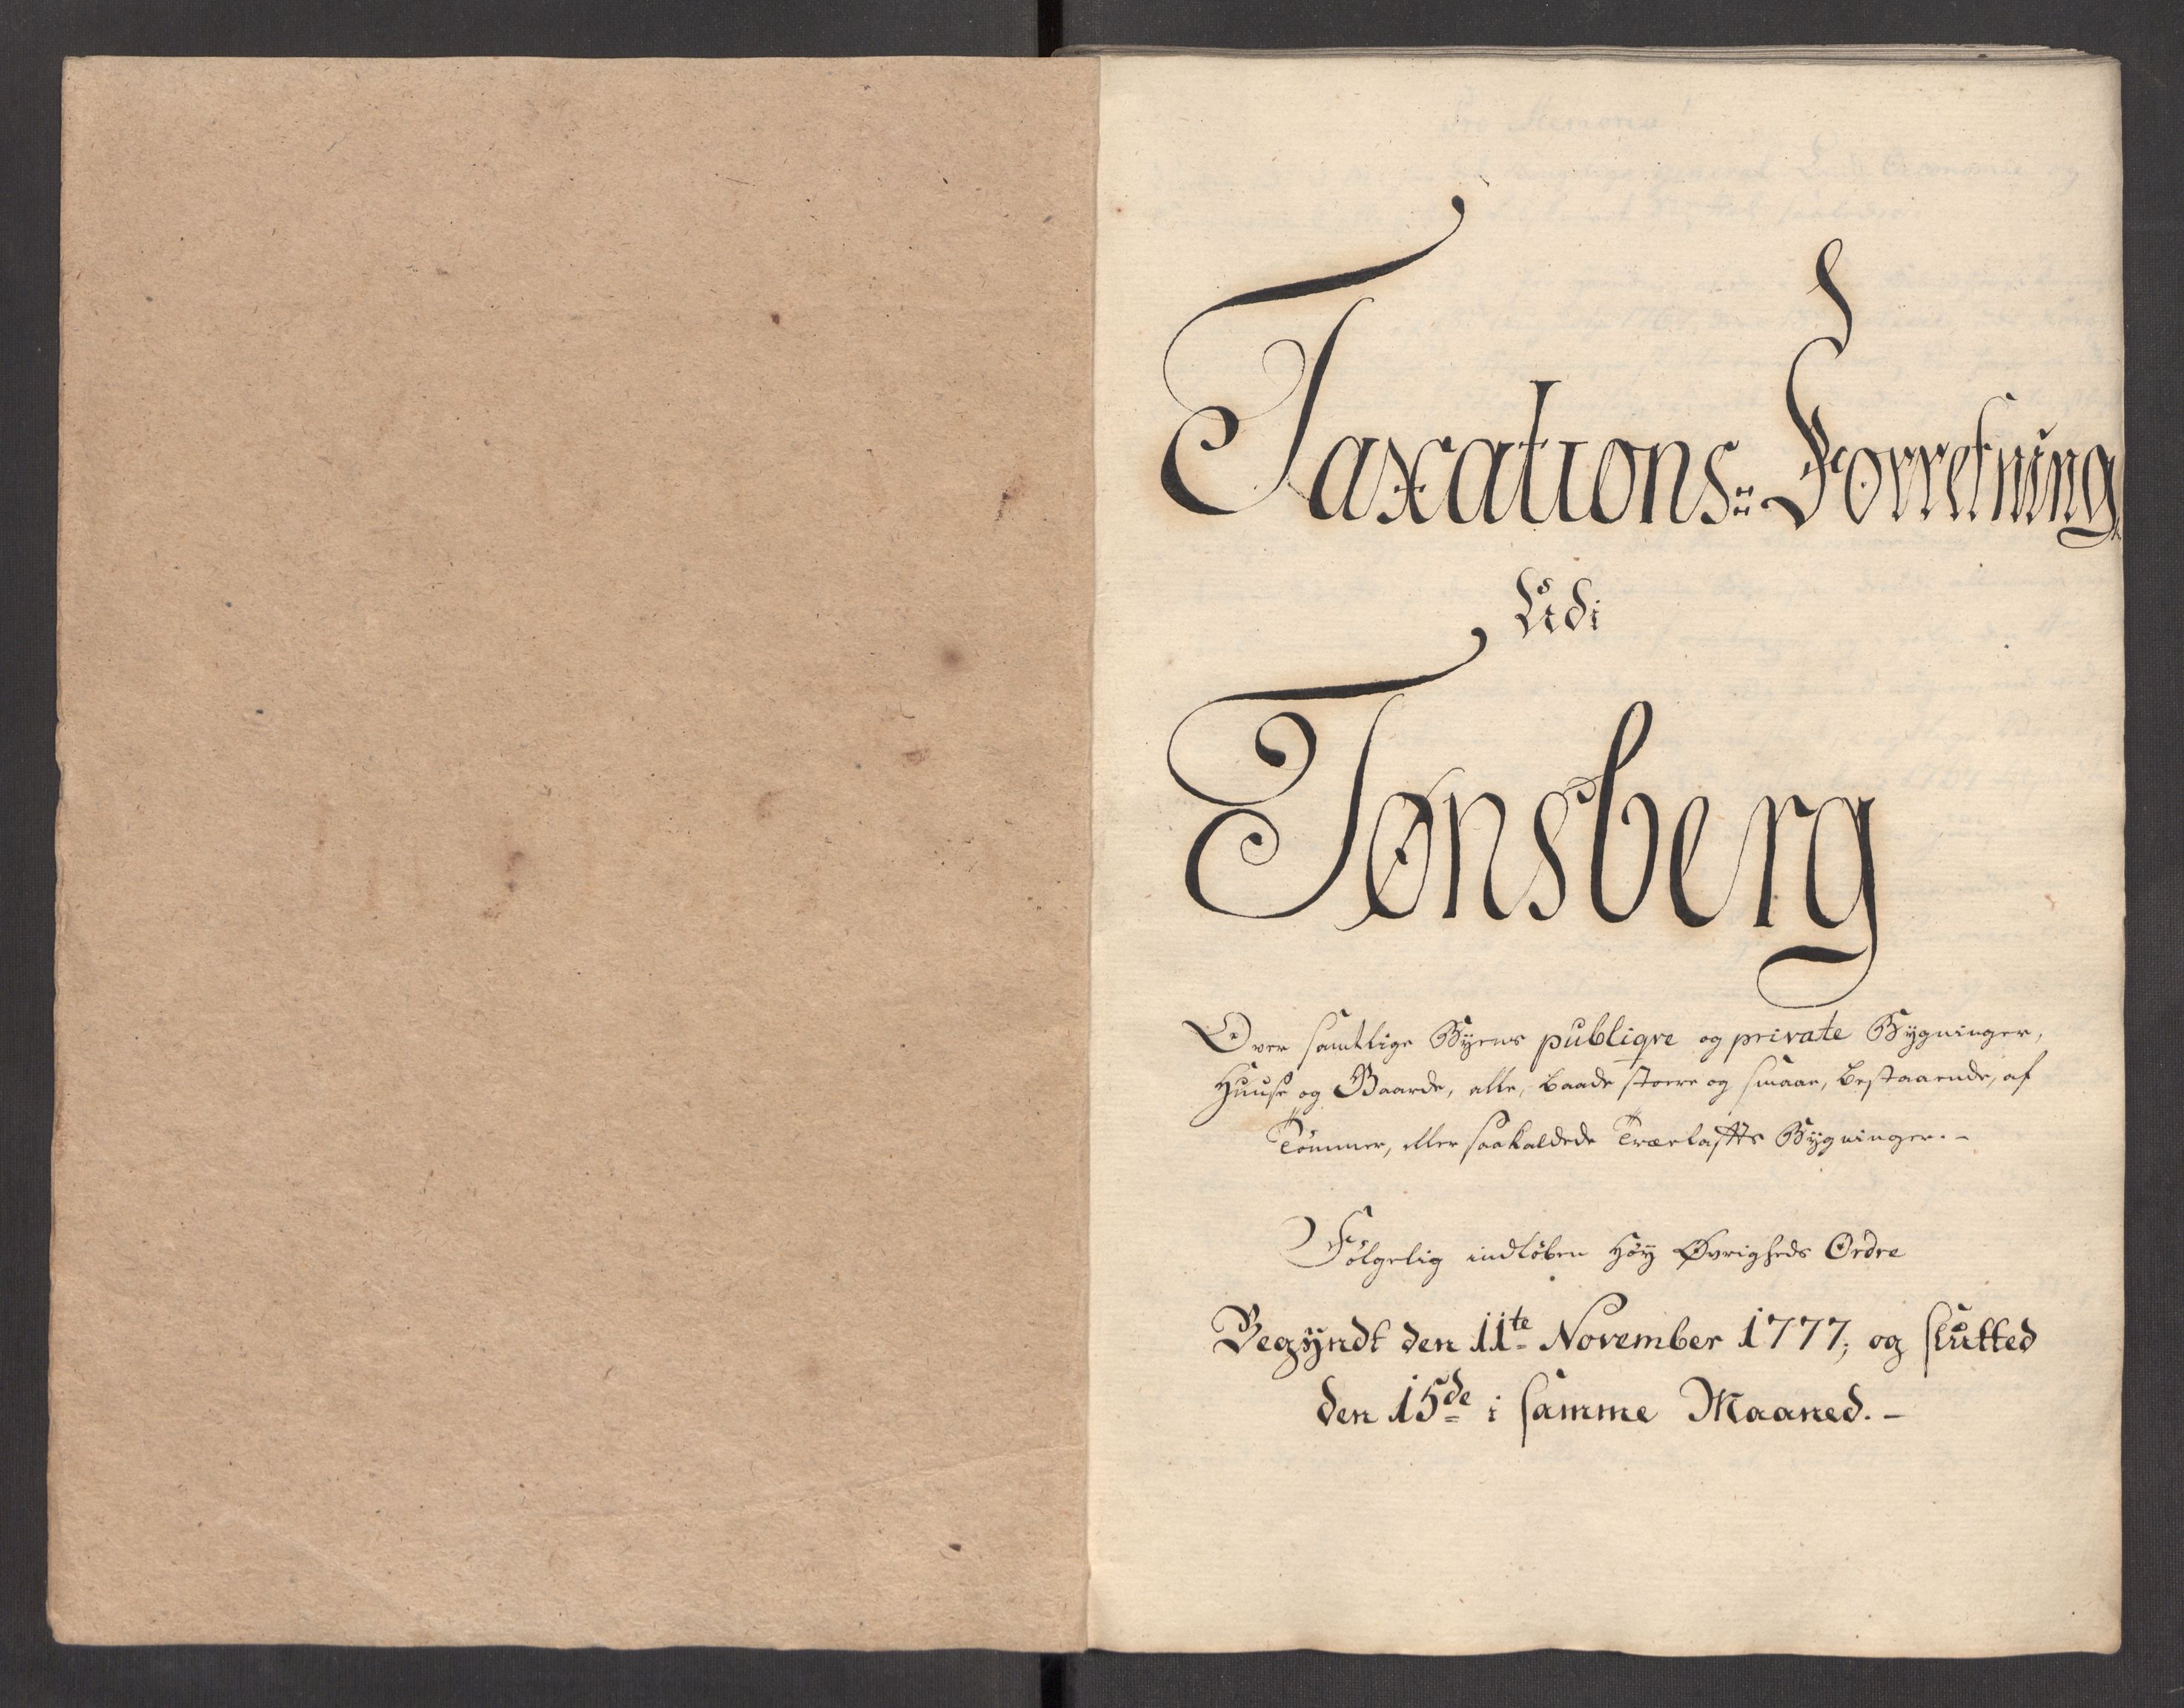 Taxations-Forretning
Udi
Tønsberg
Over samtlige Byens publiqve og private Bygninger,
Huuse og Gaarde, alle, baade stoere og smaae, bestaaende, af
Tömmer, eller saakaldede Trælastes Bygninger.-
Fölgelig indlöben Höÿ Øvrigheds Ordre
Begÿndt den 11te November 1777, og slutted
den 15de i samme Maaned.-